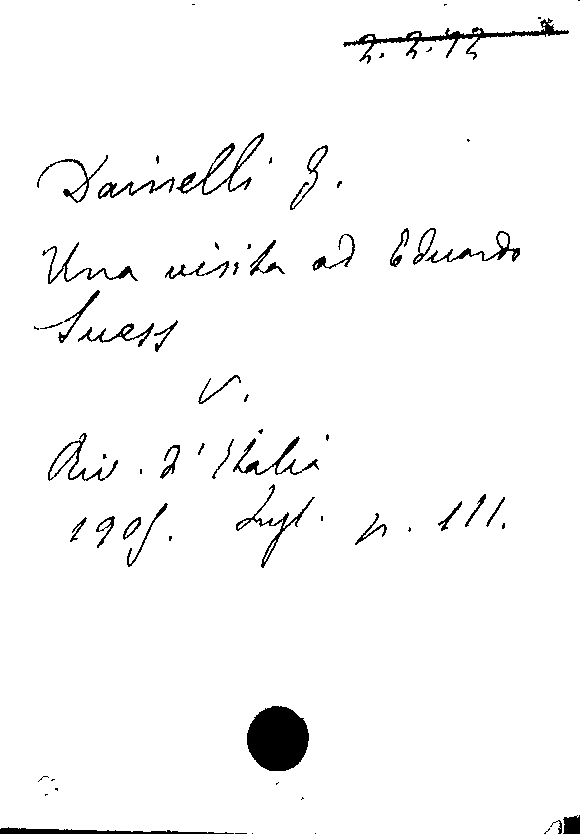 2. 2. 42
Dainelli G.
Una visita ad Eduardo
Suess
V.
Riv. d'Italia
1905. Lugl. p. 111.